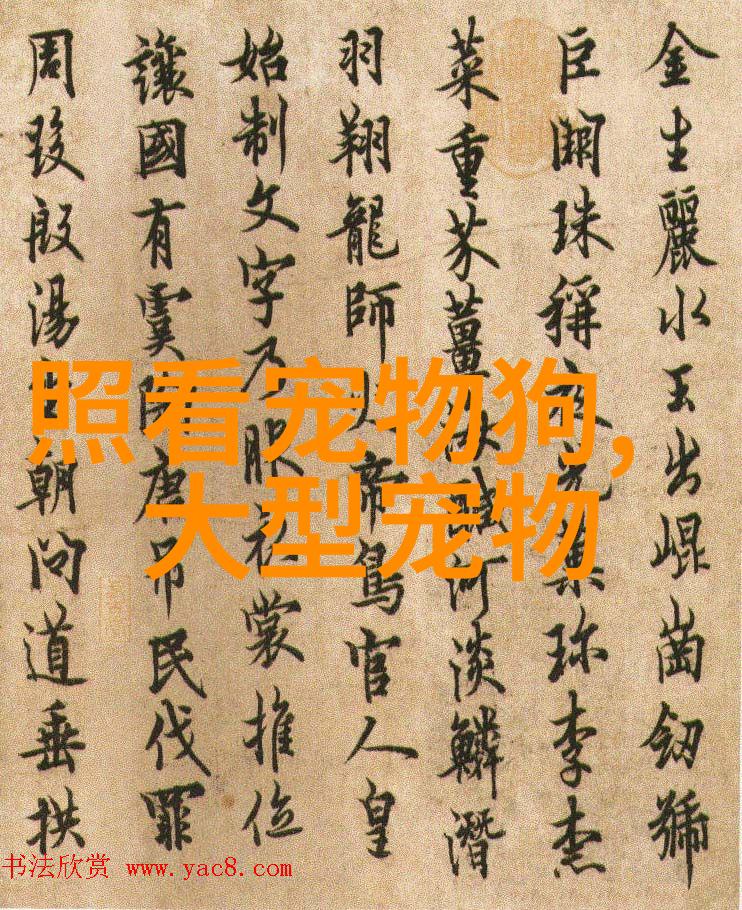 金生麗水玉出崐崗劒號
巨闕珠稱夜光菓珍李柰
菜重芥薑海醎河淡鱗潛
羽翔龍師火帝鳥官人皇
始制文字乃服衣裳推位
讓國有虞陶唐吊民伐罪
周發殷湯坐朝問道垂拱
照看宠物狗,
大型宠物
书法欣赏 www.yac8.com